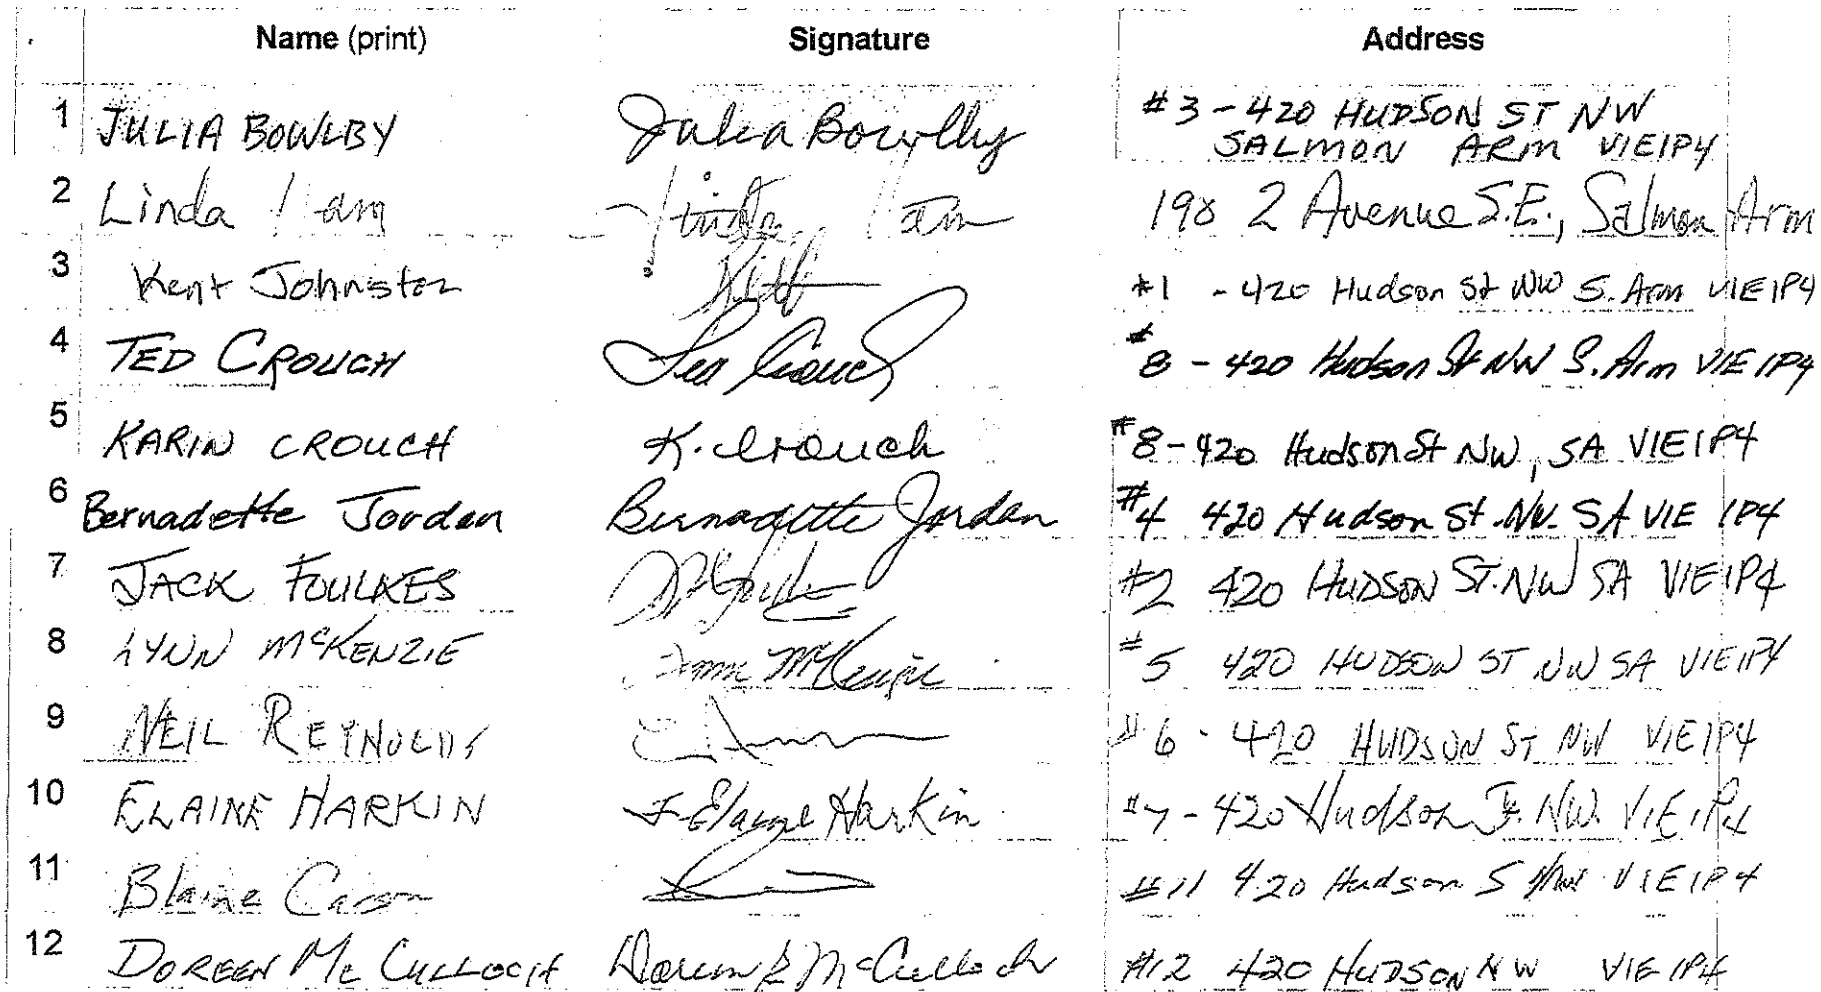 Name (print) Signature Address
1 JULIA BOWLBY Julia Bowlby #3-420 HUDSON ST NW
SALMON ARM V1E1P4
2 Linda Ham Linda Ham 198 2 Avenue S.E., Salmon Arm
3 Kent Johnston #1 - 420 Hudson St NW S. Arm V1E1P4
4 TED CROUCH Ted Crouch #8 - 420 Hudson St NW S. Arm V1E 1P4
5 KARIN CROUCH K. Crouch #8-420 Hudson St NW, SA V1E1P4
6 Bernadette Jordan Bernadette Jordan #4 420 Hudson St. NW. SA V1E 1P4
7 JACK FOULKES #2 420 HUDSON ST. NW SA V1E1P4
8 LYNN McKENZIE Lynn McKenzie #5 420 HUDSON ST NW SA V1E1P4
9 NEIL REYNOLDS #6 - 420 HUDSON ST NW V1E1P4
10 ELAINE HARKIN F Elaine Harkin #7-420 Hudson St. NW. V1E1P4
11 Blaine #11 420 Hudson S NW V1E1P4
12 DOREEN McCULLOCH Doreen McCulloch #12 420 HUDSON NW V1E 1P4